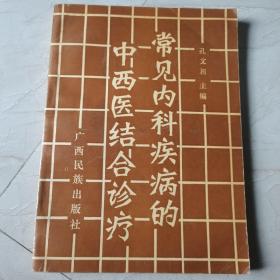 孔文 主编
常见内科疾病的
中西医结合诊疗
广西民族出版社